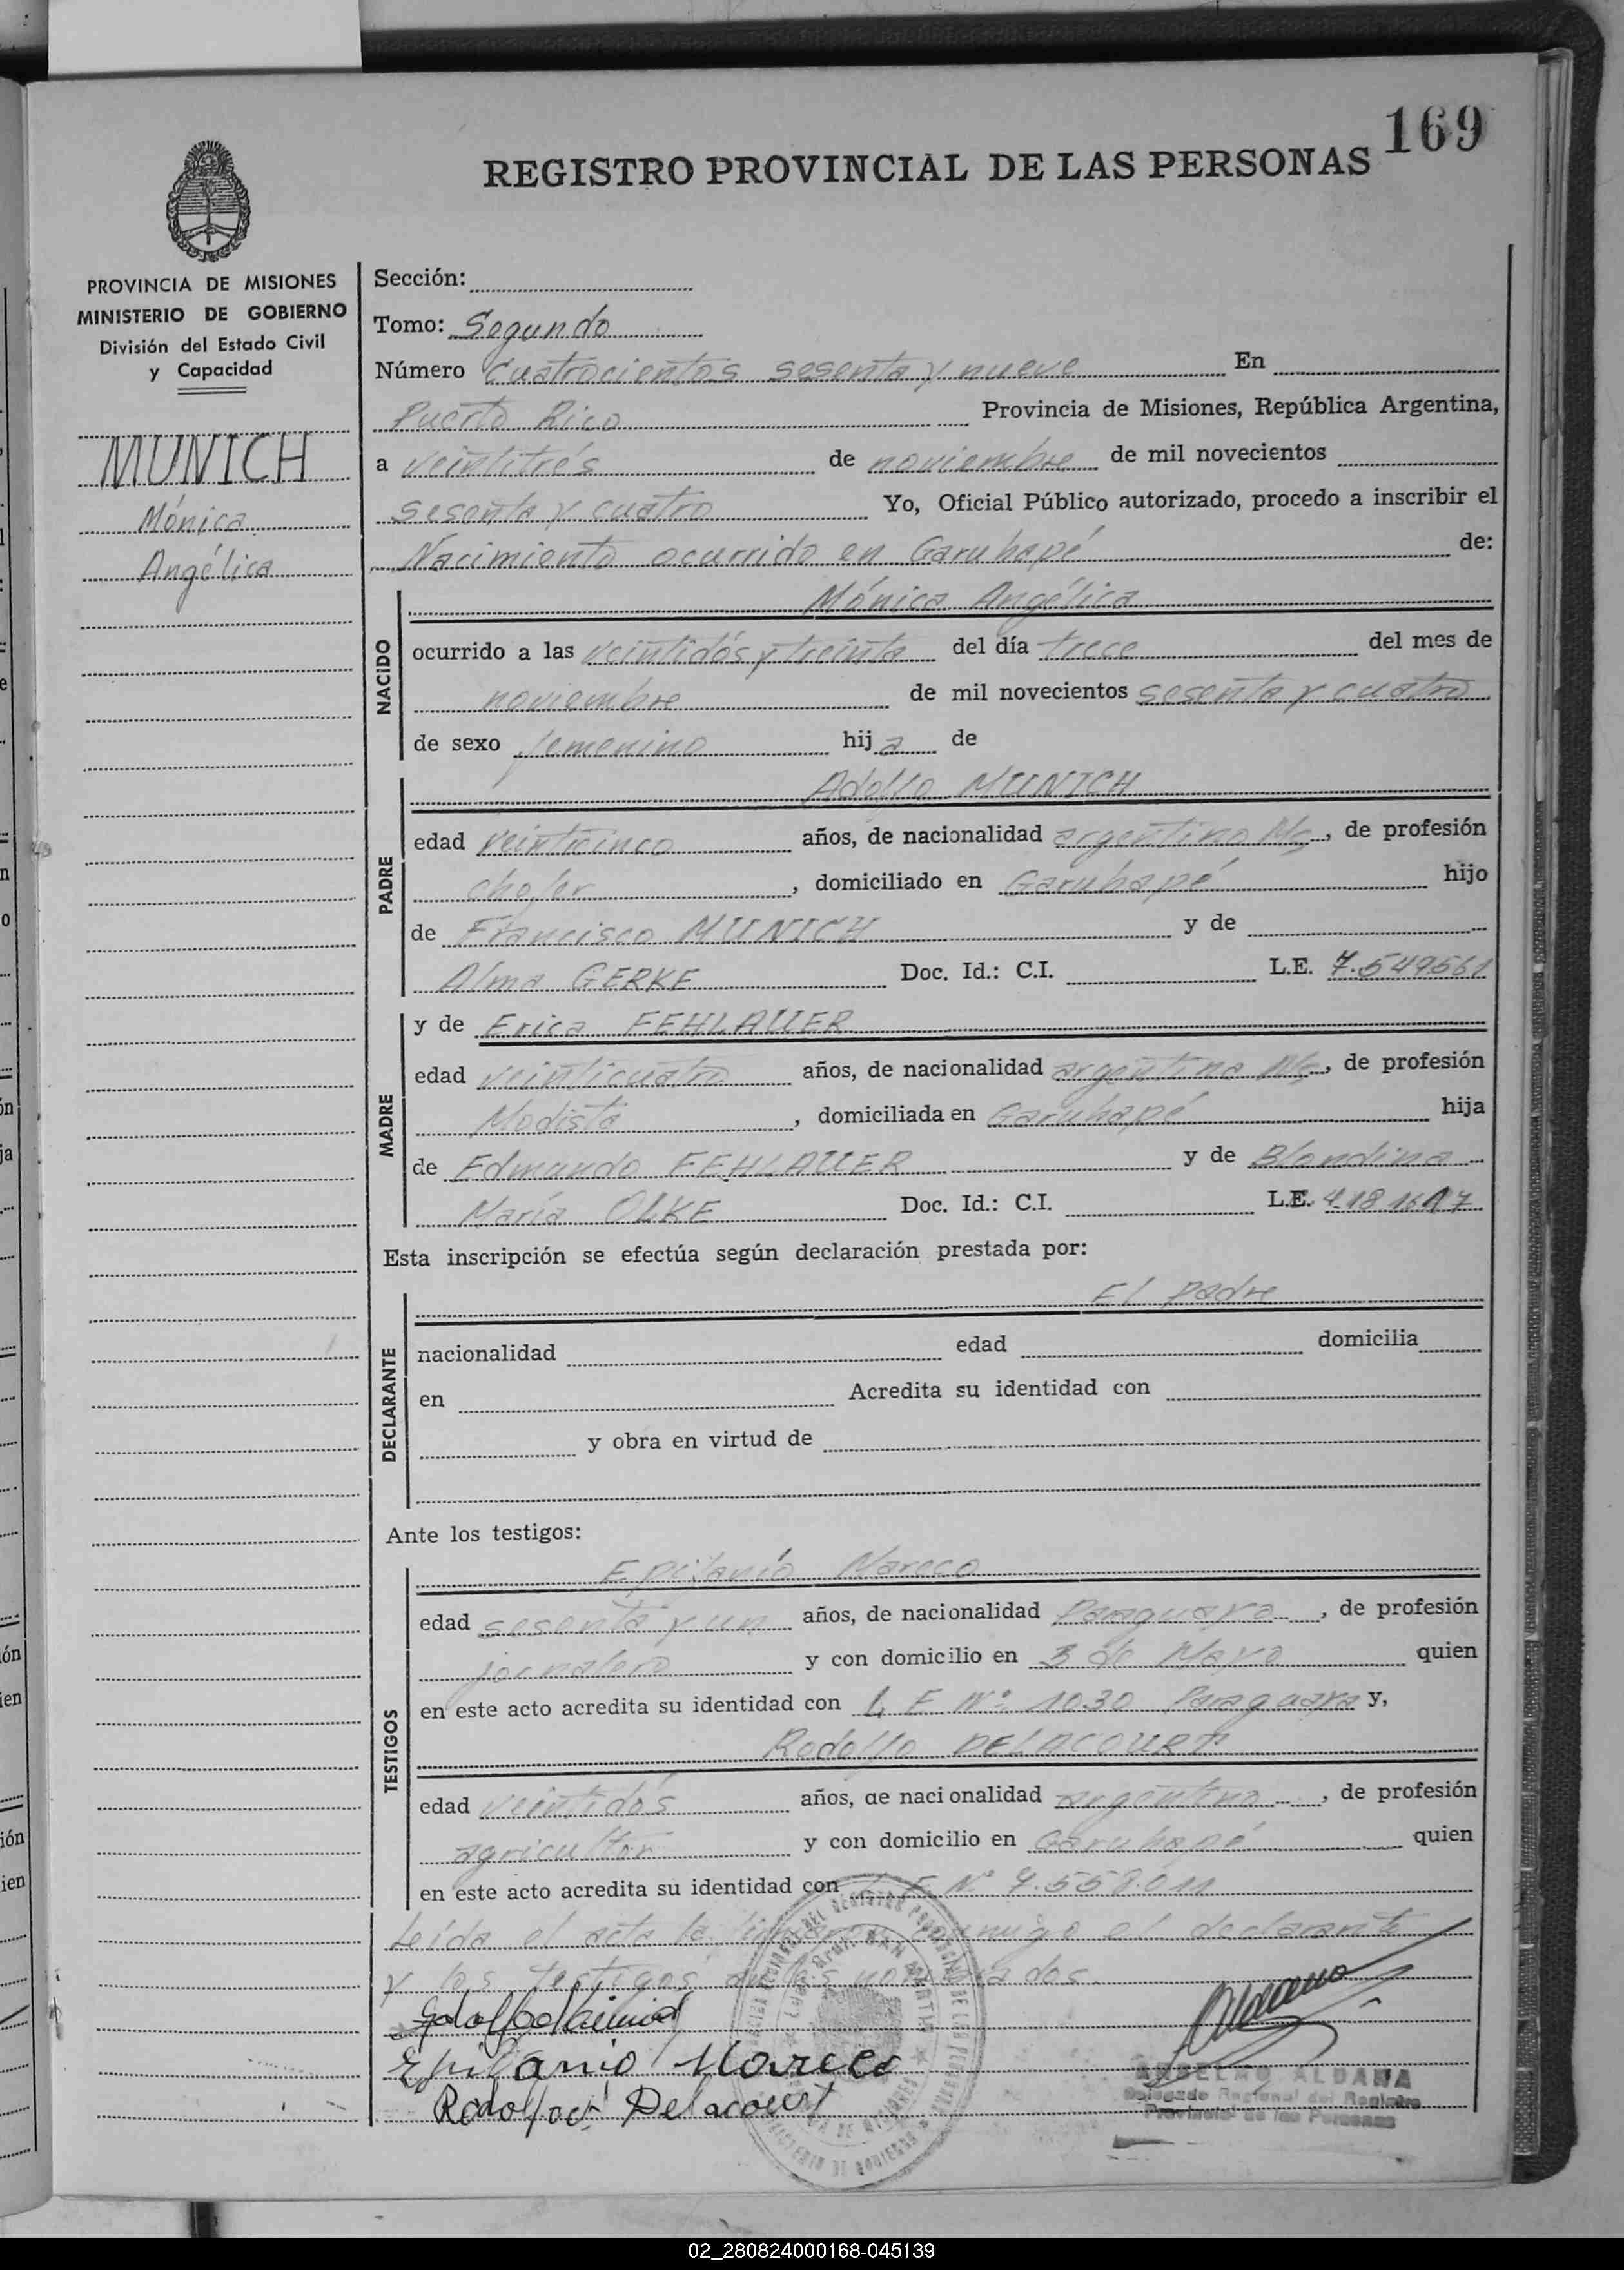 169
REGISTRO PROVINCIAL DE LAS PERSONAS
PROVINCIA DE MISIONES
MINISTERIO DE GOBIERNO
División del Estado Civil
y Capacidad
MUNICH
Mónica
Angélica
Sección:
Tomo: Segundo
Número Cuatrocientos sesenta y nueve En
Puerto Rico Provincia de Misiones, República Argentina,
a veintitrés de noviembre de mil novecientos
sesenta y cuatro Yo, Oficial Público autorizado, procedo a inscribir el
Nacimiento ocurrido en Garuhapé de:
NACIDO
Mónica Angélica
ocurrido a las veintidós y treinta del día trece del mes de
noviembre de mil novecientos sesenta y cuatro
de sexo femenino hija de
PADRE
Adolfo MUNICH
edad veinticinco años, de nacionalidad argentino Ms, de profesión
chofer, domiciliado en Garuhapé hijo
de Francisco MUNICH y de
Alma GERKE Doc. Id.: C.I. L.E. 7.549561
MADRE
y de Erica FEHLAUER
edad veinticuatro años, de nacionalidad argentina Ms, de profesión
Modista, domiciliada en Garuhapé hija
de Edmundo FEHLAUER y de Blondina
María OLKE Doc. Id.: C.I. L.E.
Esta inscripción se efectúa según declaración prestada por:
DECLARANTE
El padre
nacionalidad edad domicilia
en Acredita su identidad con
y obra en virtud de
Ante los testigos:
TESTIGOS
Epifanio Mareco
edad sesenta y un años, de nacionalidad Paraguaya, de profesión
jornalero y con domicilio en 3 de Mayo quien
en este acto acredita su identidad con L E Nº 1030 Paraguaya y,
Rodolfo DELACOURT
edad veintidós años, de nacionalidad argentino, de profesión
agricultor y con domicilio en Garuhapé quien
en este acto acredita su identidad con L E Nº 7.558.011
Leída el acta la firman conmigo el declarante
y los testigos antes nombrados.
Epifanio Mareco
Rodolfo Delacourt
ANSELMO ALDANA
Delegado Regional del Registro
Provincial de las Personas
02_280824000168-045139